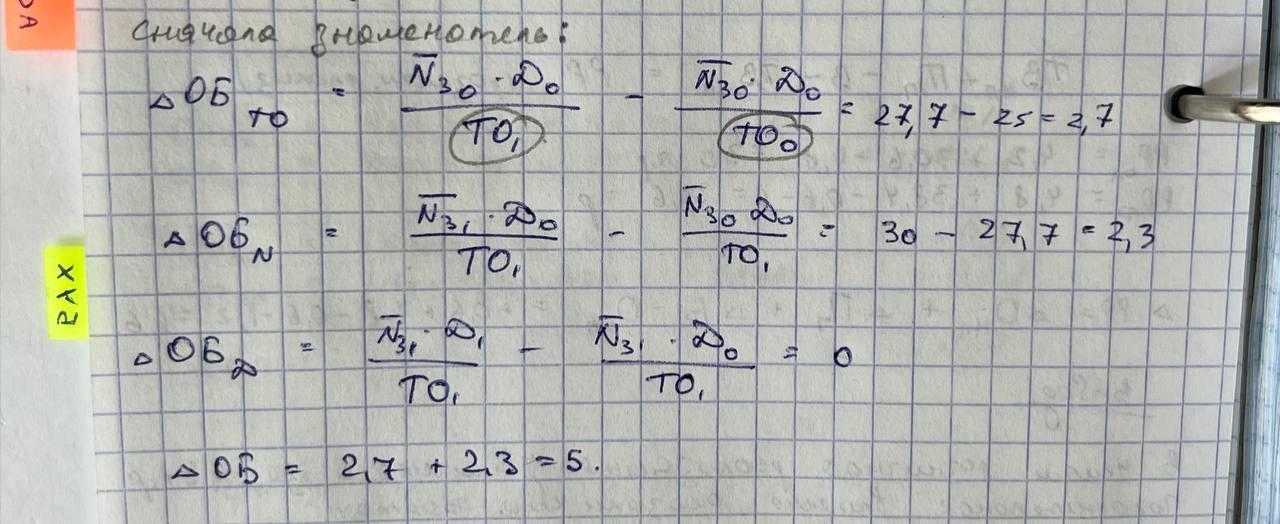 ДА
сначала знаменатель:
△ ОБ ТО = N̅З₀ · Д₀ / ТО₁ − N̅З₀ · Д₀ / ТО₀ = 27,7 − 25 = 2,7
△ ОБ N = N̅З₁ · Д₀ / ТО₁ − N̅З₀ Д₀ / ТО₁ = 30 − 27,7 = 2,3
РАХ
△ ОБ Д = N̅З₁ · Д₁ / ТО₁ − N̅З₁ · Д₀ / ТО₁ = 0
△ ОБ = 2,7 + 2,3 = 5.